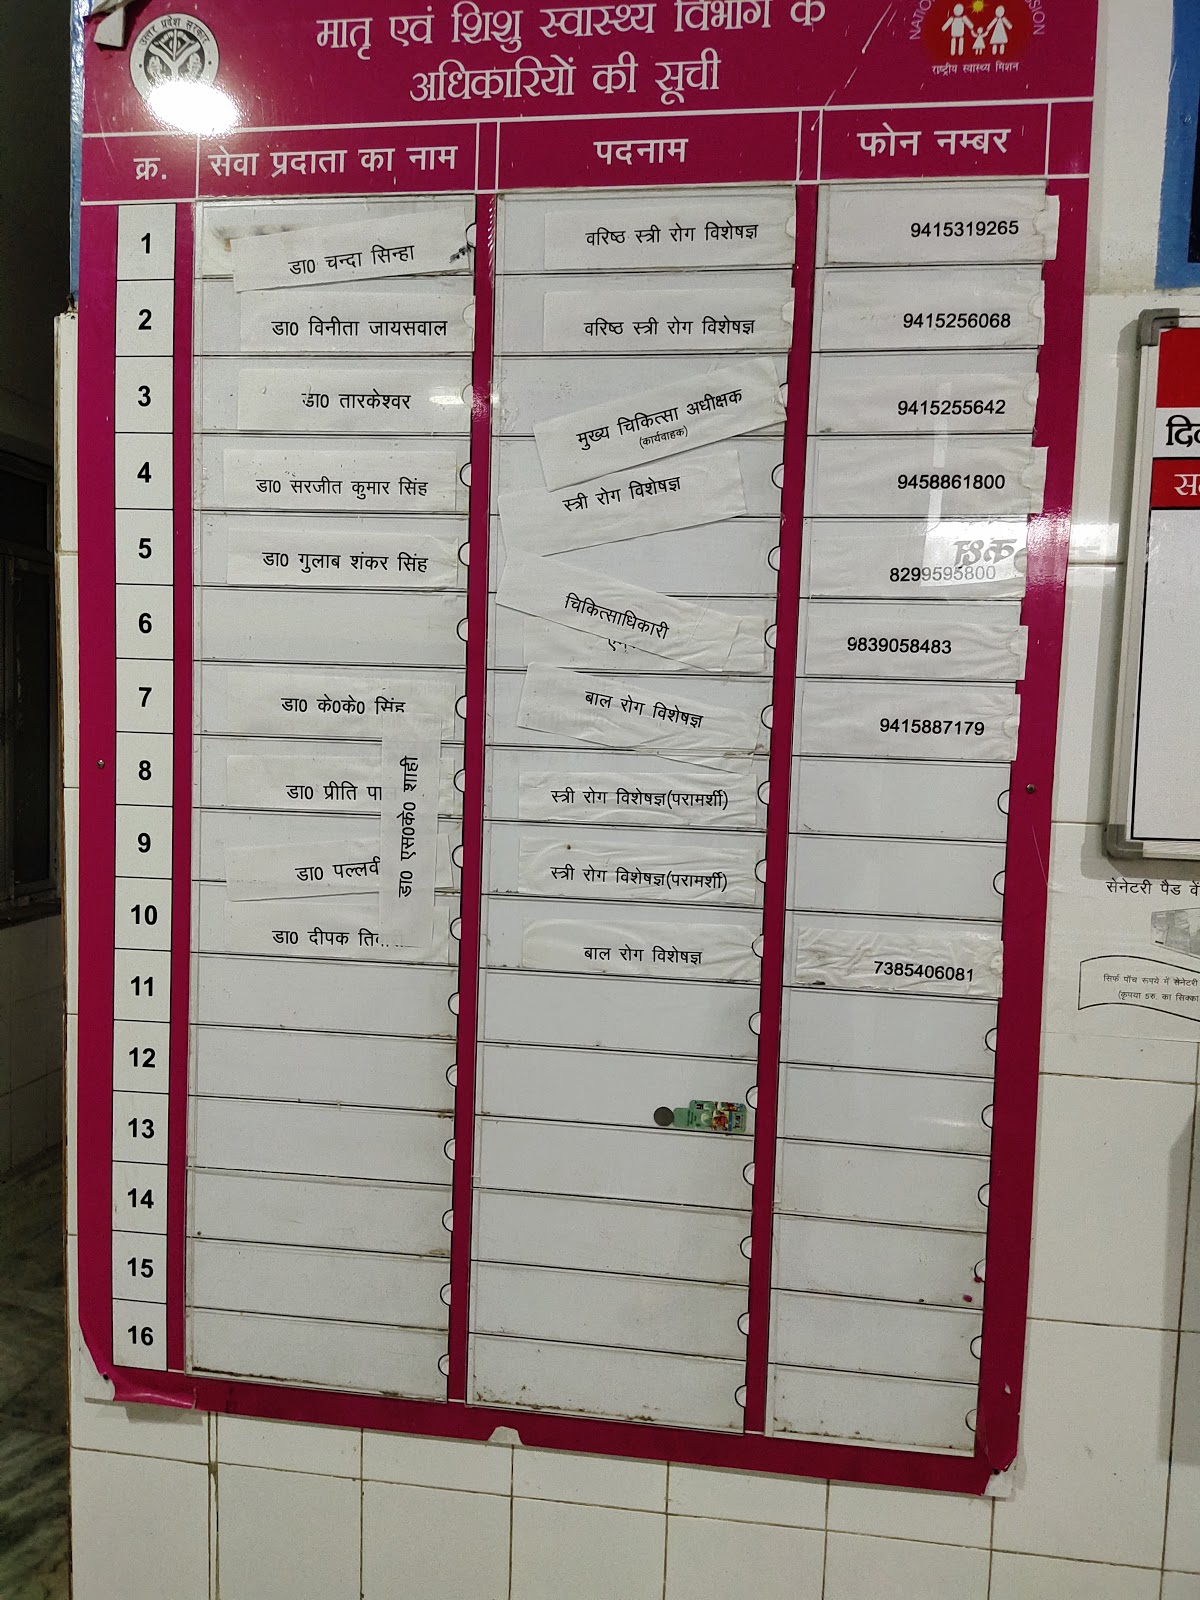 मातृ एवं शिशु स्वास्थ्य विभाग के
अधिकारियों की सूची
उत्तर प्रदेश सरकार
राष्ट्रीय स्वास्थ्य मिशन
क्र. सेवा प्रदाता का नाम पदनाम फोन नम्बर
1 डा0 चन्दा सिन्हा वरिष्ठ स्त्री रोग विशेषज्ञ 9415319265
2 डा0 विनीता जायसवाल वरिष्ठ स्त्री रोग विशेषज्ञ 9415256068
3 डा0 तारकेश्वर मुख्य चिकित्सा अधीक्षक 9415255642
(कार्यवाहक)
4 डा0 सरजीत कुमार सिंह स्त्री रोग विशेषज्ञ 9458861800
5 डा0 गुलाब शंकर सिंह 8299595800
6 चिकित्साधिकारी 9839058483
7 डा0 के0के0 सिंह बाल रोग विशेषज्ञ 9415887179
डा0 एस0के0 शाही
8 डा0 प्रीति स्त्री रोग विशेषज्ञ(परामर्शी)
9 डा0 पल्लवी स्त्री रोग विशेषज्ञ(परामर्शी)
10 डा0 दीपक बाल रोग विशेषज्ञ 7385406081
11
12
13
14
15
16
सेनेटरी पैड
सिर्फ पाँच रूपये में सेनेटरी
(कृपया 5रु. का सिक्का